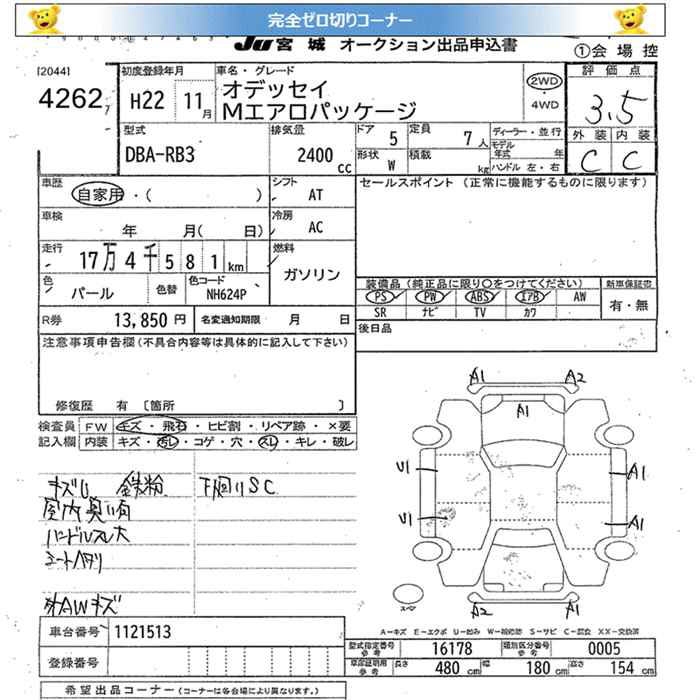 完全ゼロ切りコーナー
JU宮城 オークション出品申込書
①会場控
[2044]
4262
初度登録年月
H22 11月
車名・グレード
オデッセイ
Mエアロパッケージ
2WD
・
4WD
評価点
3.5
外装 内装
C C
型式
DBA-RB3
排気量
2400 cc
ドア 5
定員 7人
ディーラー・並行
モデル年式 年
形状 W
積載 kg
ハンドル 左・右
車歴
自家用・( )
シフト AT
車検
年 月( 日)
冷房 AC
走行
17万4千581km
燃料
ガソリン
色 パール
色替
色コード NH624P
R券 13,850円
名変通知期限 月 日
セールスポイント (正常に機能するものに限ります)
装備品(純正品に限り○をつけてください)
PS PW ABS エアB AW
SR ナビ TV カワ
新車保証書
有・無
後日品
注意事項申告欄(不具合内容等は具体的に記入して下さい)
修復歴 有 [箇所 ]
検査員記入欄
FW キズ・飛石・ヒビ割・リペア跡・×要
内装 キズ・汚レ・コゲ・穴・スレ・キレ・破レ
キズU 鉄粉 下廻りSC
室内臭い有
ハンドルスレ大
シートヘタリ
AWキズ
A1 A2
A1
U1 A1
U1 A1
A2 A1
スペア
A-キズ E-エクボ U-凹み W-補修跡 S-サビ C-腐食 XX-交換済
車台番号 1121513
登録番号
型式指定番号参考 16178
類別区分番号参考 0005
車庫証明用参考 長さ 480cm 幅 180cm 高さ 154cm
希望出品コーナー(コーナーは各会場により異なります。)